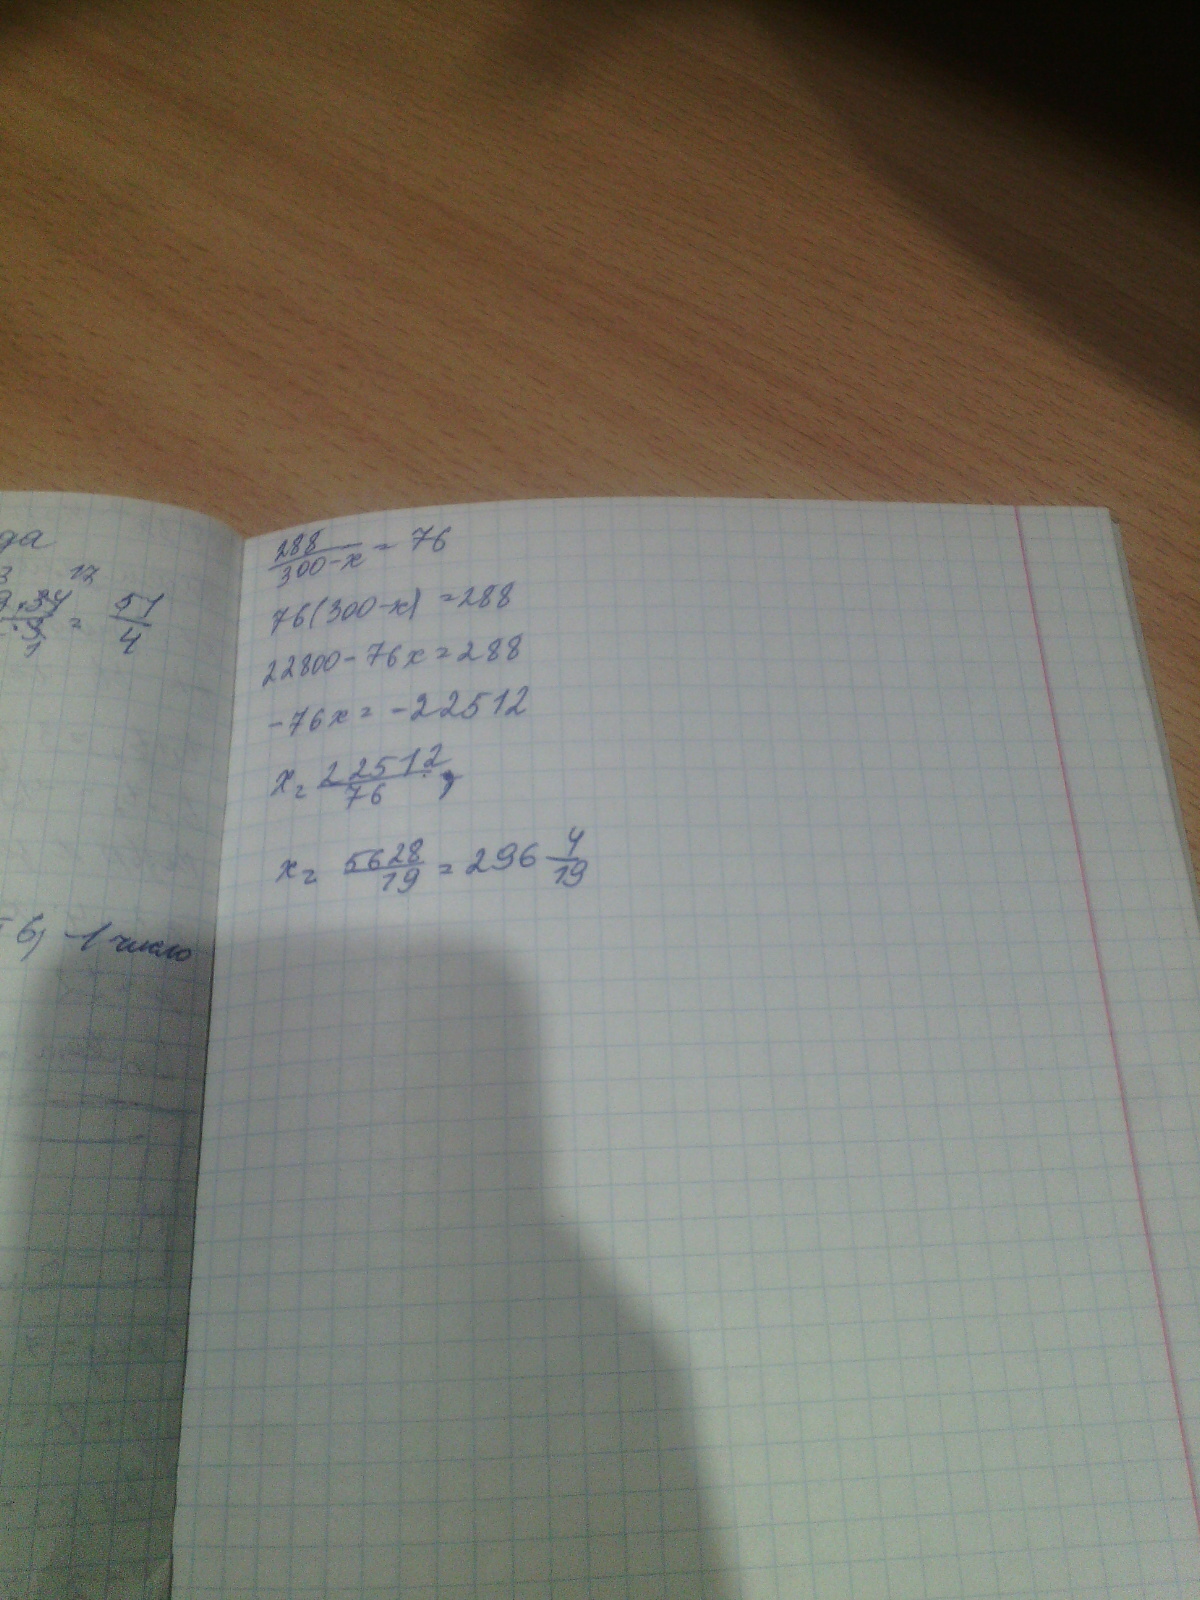 да
3 17
9·34 = 51/4
6) -1 число
288/(300-x) = 76
76(300-x) = 288
22800-76x=288
-76x = -22512
x = 22512/76 ;
x = 5628/19 = 296 4/19